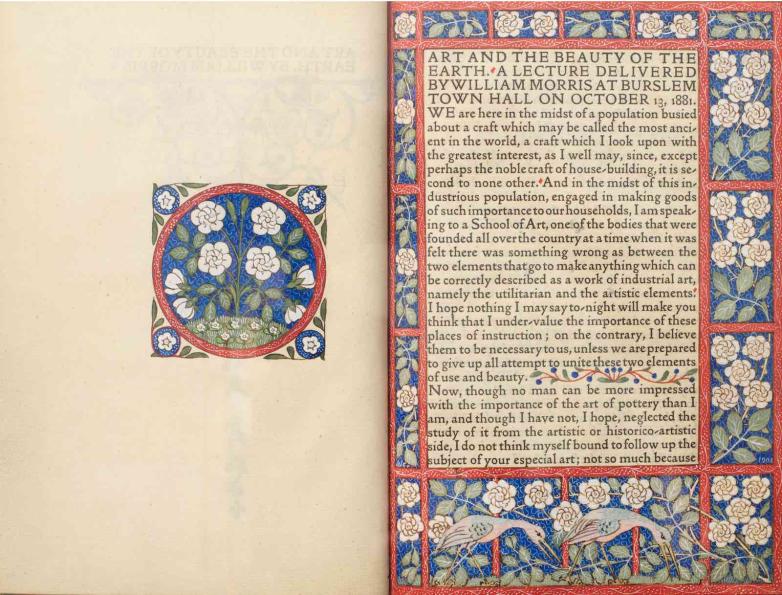 ART AND THE BEAUTY OF THE
EARTH. A LECTURE DELIVERED
BY WILLIAM MORRIS AT BURSLEM
TOWN HALL ON OCTOBER 13, 1881.
WE are here in the midst of a population busied
about a craft which may be called the most anci-
ent in the world, a craft which I look upon with
the greatest interest, as I well may, since, except
perhaps the noble craft of house-building, it is se-
cond to none other. And in the midst of this in-
dustrious population, engaged in making goods
of such importance to our households, I am speak-
ing to a School of Art, one of the bodies that were
founded all over the country at a time when it was
felt there was something wrong as between the
two elements that go to make anything which can
be correctly described as a work of industrial art,
namely the utilitarian and the artistic elements.
I hope nothing I may say to-night will make you
think that I under-value the importance of these
places of instruction; on the contrary, I believe
them to be necessary to us, unless we are prepared
to give up all attempt to unite these two elements
of use and beauty.
Now, though no man can be more impressed
with the importance of the art of pottery than I
am, and though I have not, I hope, neglected the
study of it from the artistic or historico-artistic
side, I do not think myself bound to follow up the
subject of your especial art; not so much because